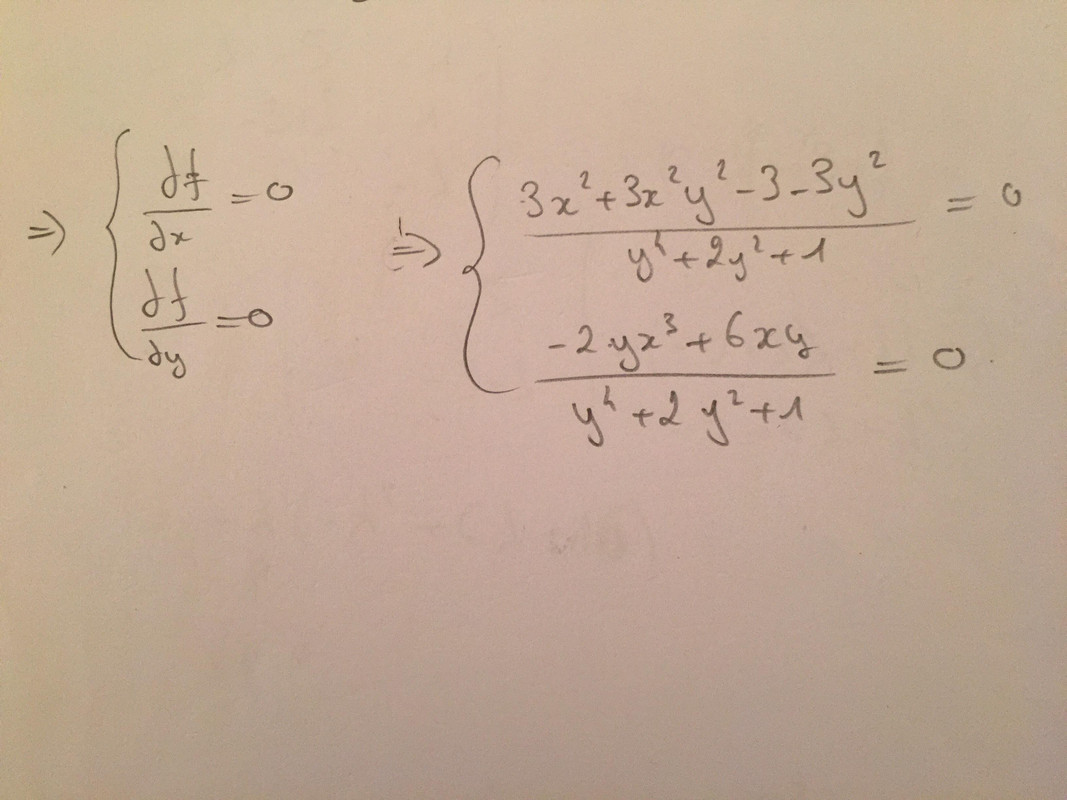 ⇒ { ∂f/∂x = 0 ⇒ { (3x² + 3x²y² - 3 - 3y²)/(y⁴ + 2y² + 1) = 0
∂f/∂y = 0 (-2yx³ + 6xy)/(y⁴ + 2y² + 1) = 0